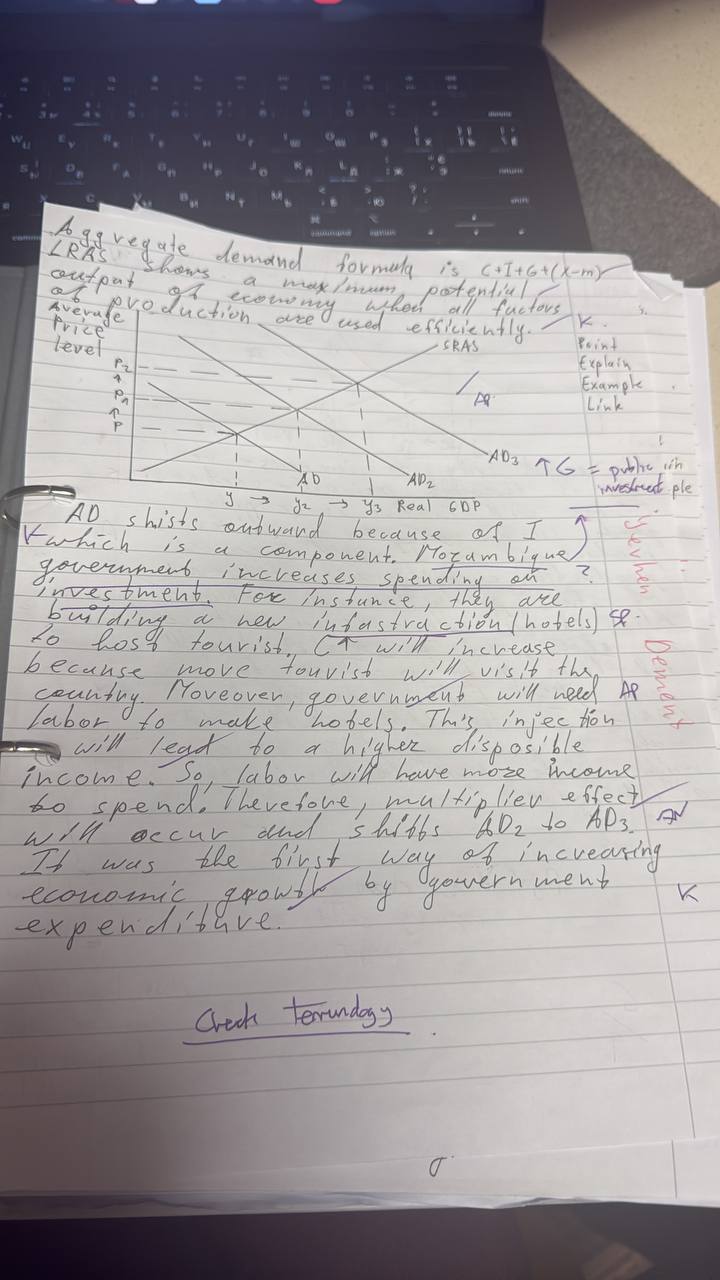 Aggregate demand formula is C+I+G+(X-m)
LRAS shows a maximum potential
output of economy when all factors
of production are used efficiently. K.
Average
Price
level
P2
P1
P
SRAS
AP
AD
AD2
AD3
y → y2 → y3 Real GDP
Point
Explain
Example
Link
↑G = public
investment ple
AD shists outward because of I
K which is a component. Mozambique
government increases spending on ?
investment. For instance, they are
building a new infastraction (hotels) SP.
to host tourist. C↑ will increase
because move tourist will visit the
country. Moveover, government will need AP
labor to make hotels. This injection
will lead to a higher disposible
income. So, labor will have more income
to spend. Therefore, multiplier effect
will occur and shifts AD2 to AD3. AN
It was the first way of increasing
economic growth by government K
expenditure.
Yevhen
Dement
Check terminology